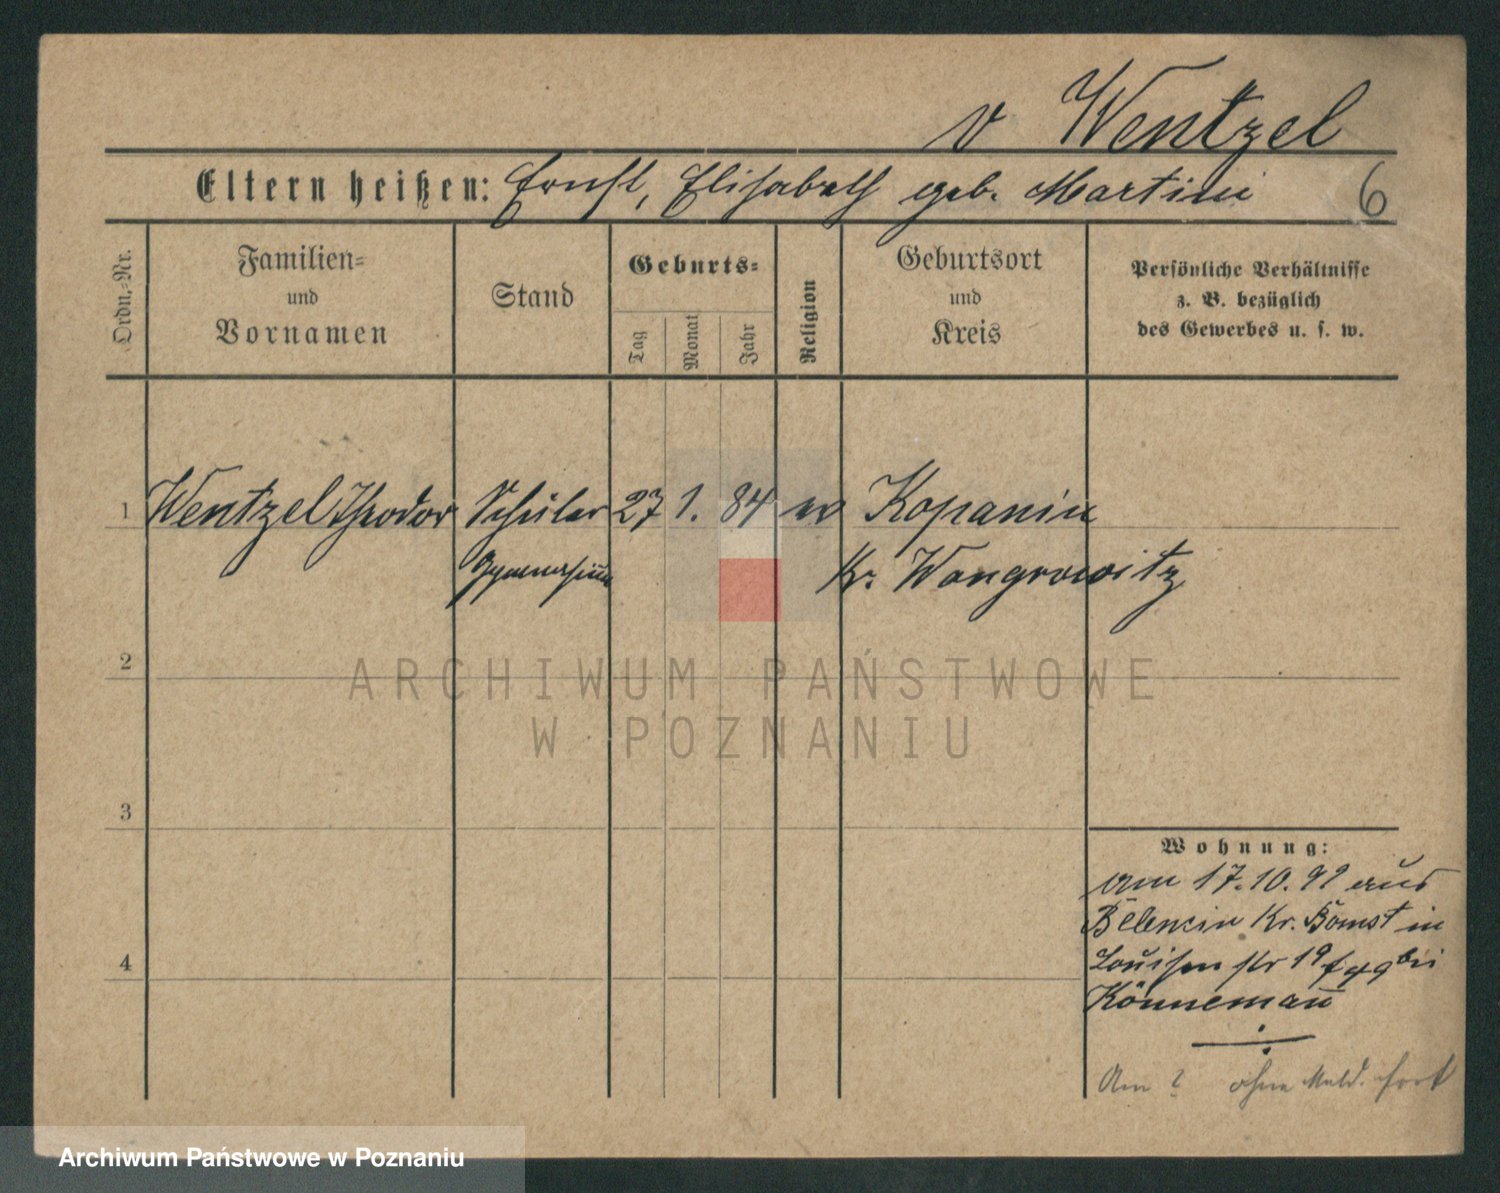 v Wentzel
Eltern heißen: Ernst, Elisabeth geb. Martini
6
Ordn.-Nr.
Familien-
und
Vornamen
Stand
Geburts-
Tag
Monat
Jahr
Religion
Geburtsort
und
Kreis
Persönliche Verhältnisse
z. B. bezüglich
des Gewerbes u. s. w.
1 Wentzel Theodor Schüler 27 1. 84 ev Kopanin
Gymnasium Kr. Wongrowitz
2
ARCHIWUM PAŃSTWOWE
W POZNANIU
3
Wohnung:
am 17.10.99 aus
Belencin Kr. Bomst in
Louisen str 19 bei
Könnemann
4
Am ? ohne Meld. fort
Archiwum Państwowe w Poznaniu